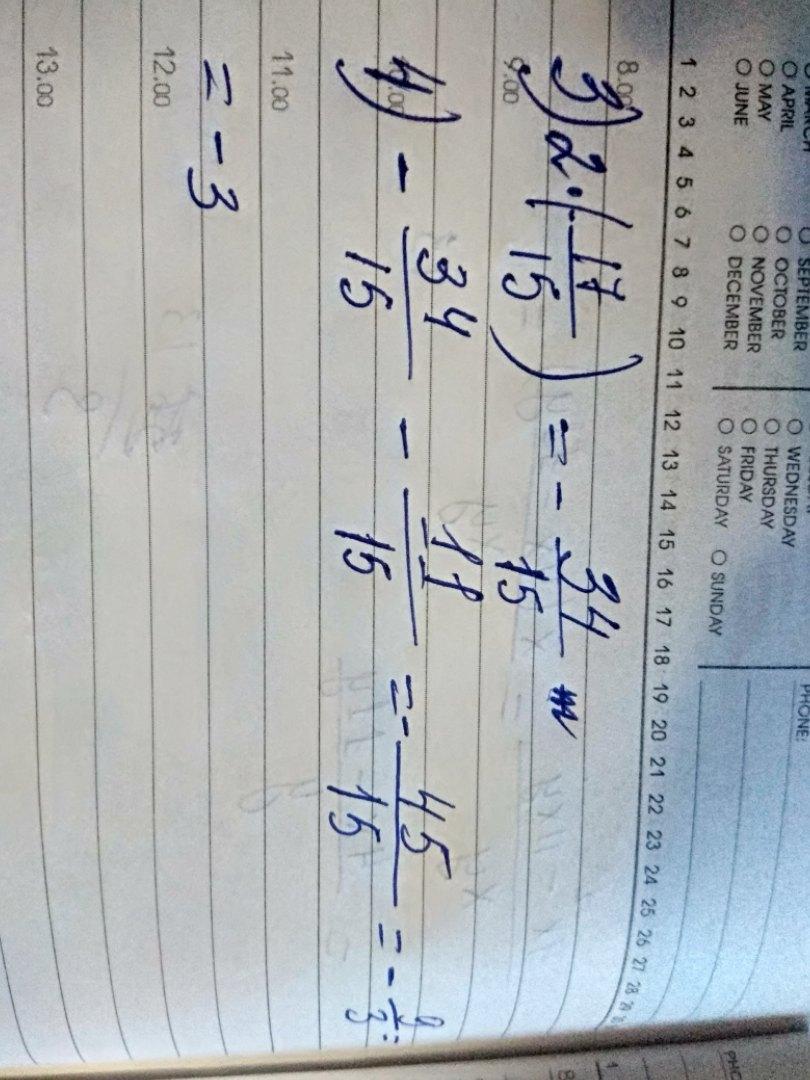 MARCH SEPTEMBER WEDNESDAY
APRIL OCTOBER THURSDAY PHONE:
MAY NOVEMBER FRIDAY
JUNE DECEMBER SATURDAY SUNDAY
1 2 3 4 5 6 7 8 9 10 11 12 13 14 15 16 17 18 19 20 21 22 23 24 25 26 27 28
8.00
3) 2·(-17/15) = -34/15
9.00
4) - 34/15 - 11/15 = - 45/15 = - 9/3 =
11.00
= -3
12.00
13.00